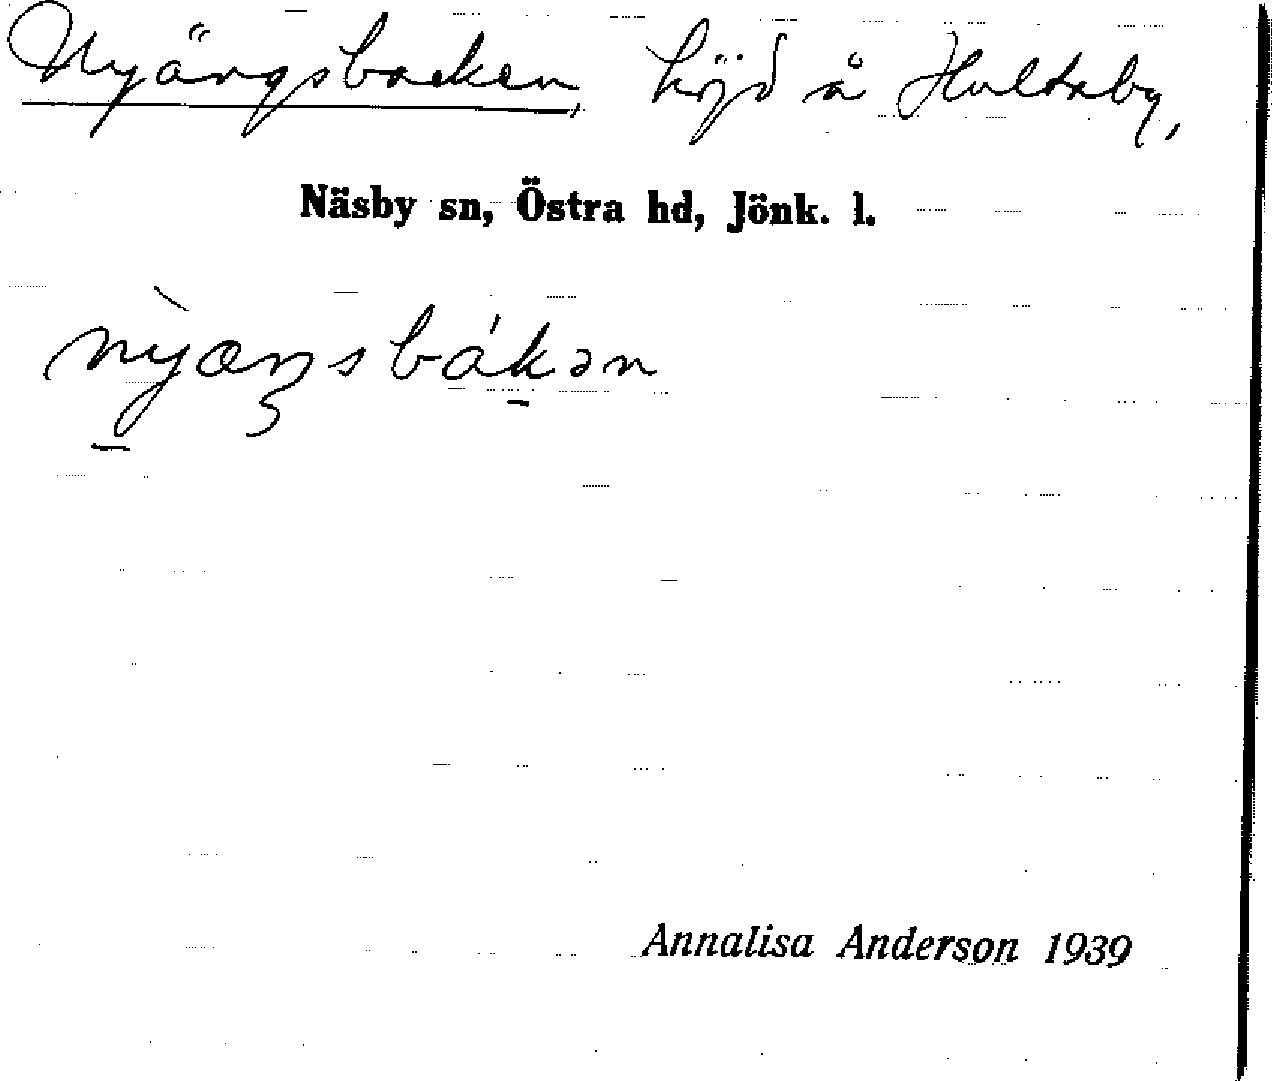 Nyängsbacken, höjd å Hultsby,
Näsby sn, Östra hd, Jönk. l.
nỳæŋsbákən
Annalisa Anderson 1939